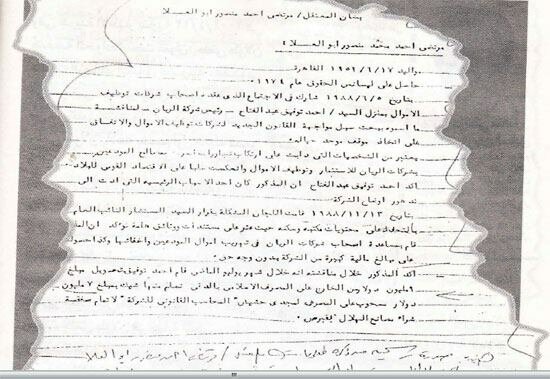 بشأن المعتقل / مرتضى احمد منصور ابو العلا
مرتضى احمد محمد منصور ابو العلا :
مواليد ١٩٥٢/٦/١٧ القاهرة
حاصل على ليسانس الحقوق عام ١٩٧٤
بتاريخ ١٩٨٨/٦/٥ شارك فى الاجتماع الذى عقده اصحاب شركات توظيف
الاموال بمنزل السيد / احمد توفيق عبد الفتاح - رئيس شركة الريان - لمناقشة
ما اسموه ببحث سبل مواجهة القانون الجديد لشركات توظيف الاموال والاتفاق
على اتخاذ موقف موحد حياله
يعتبر من الشخصيات التى دأبت على ارتكاب بمصالح المودعين
بشركات الريان للاستثمار وتوظيف الاموال وانعكست سلبا على الاقتصاد القومى للبلاد
اكد احمد توفيق عبد الفتاح ان المذكور كان احد الاسباب الرئيسيه التى ادت الى
تدهور اوضاع الشركة
بتاريخ ١٩٨٨/١١/١٣ قامت اللجان المشكلة بقرار السيد المستشار النائب العام
بالتحفظ على محتويات مكتبه وسكنه حيث عثر على مستندات ووثائق هامة تؤكد
قام بمساعدة اصحاب شركات الريان فى تهريب اموال المودعين واخفائها وكذا حصوله
على مبالغ مالية كبيرة من الشركة بدون وجه حق
اكد المذكور خلال مناقشته انه خلال شهر يوليو الماضى قام احمد توفيق بتحويل مبلغ
مليون دولار من الخارج على المصرف الاسلامى بالدقى تسلم منها شيك بمبلغ ٧ مليون
دولار مسحوب على المصرف لمجدى المحاسب القانونى للشركة لاتمام صفقة
شراء مصانع الهلال